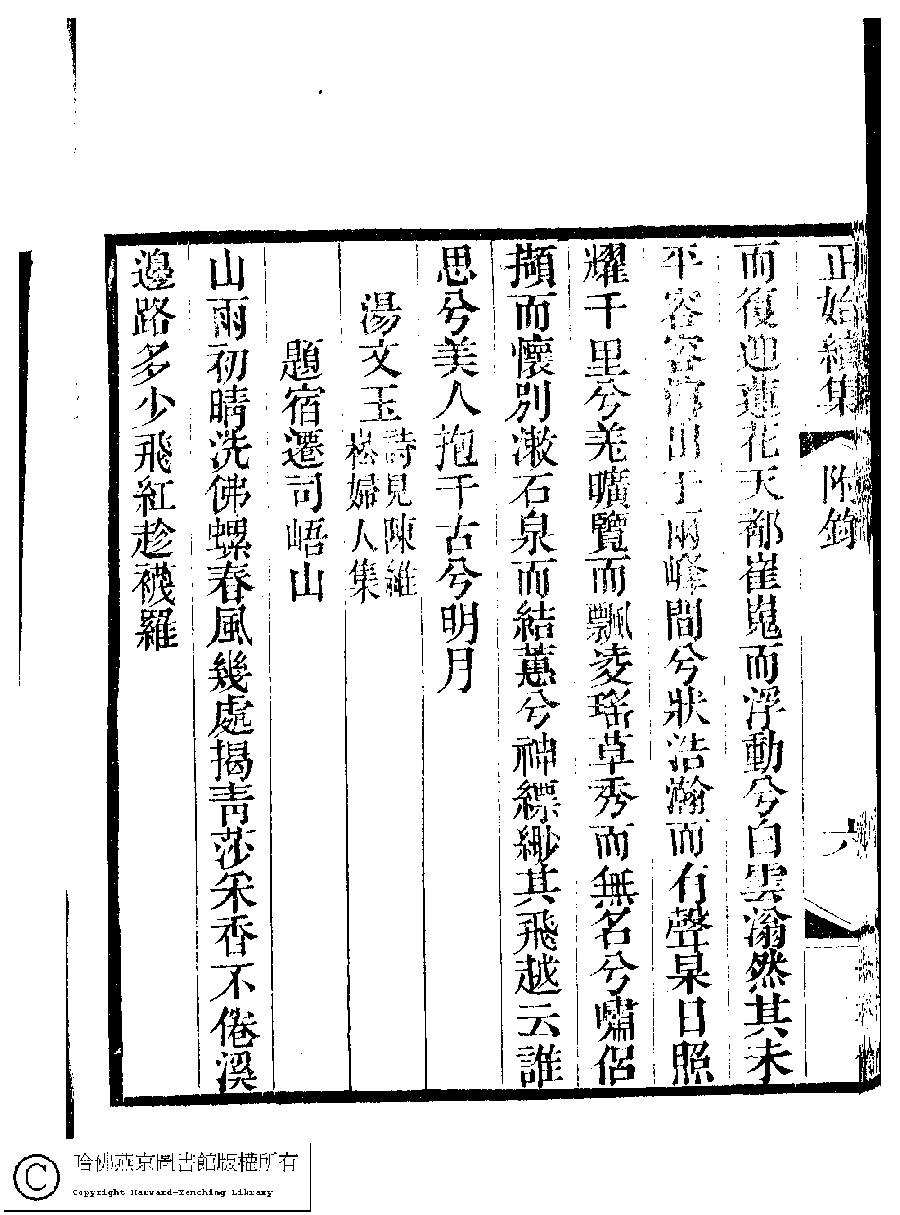 正始續集 附錄 六
而復迎蓮花天都崔嵬而浮動兮白雲滃然其未
平容容宵出于兩峰間兮狀浩瀚而有聲杲日照
耀千里兮羌曠覽而飄凌瑤草秀而無名兮嘯侶
擷而懷別漱石泉而結蕙兮神縹緲其飛越云誰
思兮美人抱千古兮明月
湯文玉 詩見陳維
崧婦人集
題宿遷司峿山
山雨初晴洗佛螺春風幾處揭青莎采香不倦溪
邊路多少飛紅趁襪羅
哈佛燕京圖書館版權所有
Copyright Harvard-Yenching Library